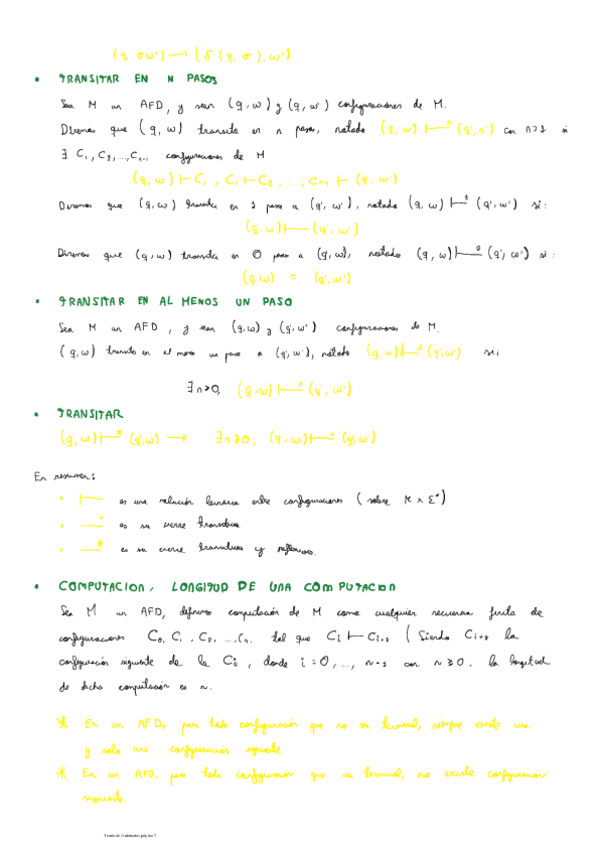 (q, σw') → (δ(q, σ), w')
• TRANSITAR EN N PASOS
Sea M un AFD, y sean (q, w) y (q, w') configuraciones de M.
Diremos que (q, w) transita en n pasos, notado (q, w) ⊢ⁿ (q', w') con n>1 si
∃ C₁, C₂, ..., Cₙ₋₁ configuraciones de M
(q, w) ⊢ C₁, C₁ ⊢ C₂, ..., Cₙ₋₁ ⊢ (q', w')
Diremos que (q, w) transita en 1 paso a (q', w'), notado (q, w) ⊢¹ (q', w') si:
(q, w) ⊢ (q', w')
Diremos que (q, w) transita en 0 pasos a (q, w), notado (q, w) ⊢⁰ (q', w') si:
(q, w) = (q', w')
• TRANSITAR EN AL MENOS UN PASO
Sea M un AFD, y sean (q, w) y (q', w') configuraciones de M.
(q, w) transita en al menos un paso a (q', w'), notado (q, w) ⊢⁺ (q', w') si:
∃ n>0, (q, w) ⊢ⁿ (q', w')
• TRANSITAR
(q, w) ⊢* (q', w) → ∃ n≥0, (q, w) ⊢ⁿ (q, w)
En resumen:
• ⊢ es una relación binaria entre configuraciones (sobre K x Σ*)
• ⊢⁺ es su cierre transitivo
• ⊢* es su cierre transitivo y reflexivo.
• COMPUTACION, LONGITUD DE UNA COMPUTACION
Sea M un AFD, definimos computación de M como cualquier secuencia finita de
configuraciones C₀, C₁, C₂, ..., Cₙ. tal que Cᵢ ⊢ Cᵢ₊₁ (Siendo Cᵢ₊₁ la
configuración siguiente de la Cᵢ, donde i = 0, ..., n-1 con n ≥ 0. La longitud
de dicha computación es n.
* En un AFD, para toda configuración que no sea terminal, siempre existe una
y solo una configuración siguiente.
* En un AFD, para toda configuración que sea terminal, no existe configuración
siguiente.